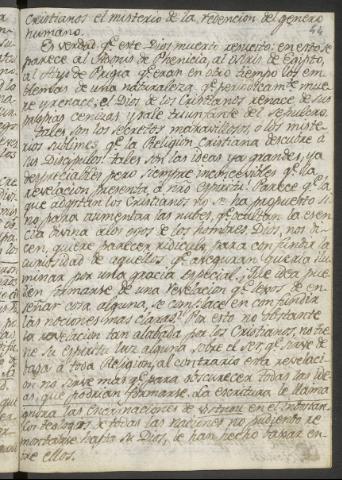 Cristianos el misterio de la redencion del genero
humano. 44
Es verdad qe. este Dios muerto resucitò: en esto se
parece al Adonis de Phenicia, al Osiris de Egipto,
al Atys de Phrigia qe. eran en otro tiempo los em-
blemas de una naturaleza qe. periodicamte. mue-
re y renace; el Dios de los Cristianos renace de sus
propias cenizas y sale triunfante del sepulcro.
Tales son los secretos maravillosos, ò los miste-
rios sublimes qe. la Religion Cristiana descubre à
sus Discipulos! tales son las ideas ya grandes, ya
despreciables pero siempre inconcevibles qe. la
revelacion presenta à nro espiritu! Parece qe. la
qe. adoptan los Cristianos no se ha propuesto si
no para aumentar las nubes qe. ocultan la esen
cia divina a los ojos de los hombres. Dios, nos di-
cen, quiere parecer ridiculo para confundir la
curiosidad de aquellos qe. aseguran quería ilu-
minar por una gracia especial. Que idea pue
den formarse de una revelacion qe. lejos de en-
señar cosa alguna, se complace en confundir
las nociones mas claras? Por esto no obstante
la revelacion tan alabada por los Cristianos, no tie
ne su espiritu luz alguna sobre el ser qe. sirve de
basa à toda Religion, al contrario esta revelaci-
on no sirve mas qe. para obscurecer todas las ide-
as, que podrian formarse. La escritura le llama
las encarnaciones de en el Indostan.
los teologos de todas las naciones no pudiendo re
montarse hasta su Dios, le han hecho bajar en-
tre ellos.